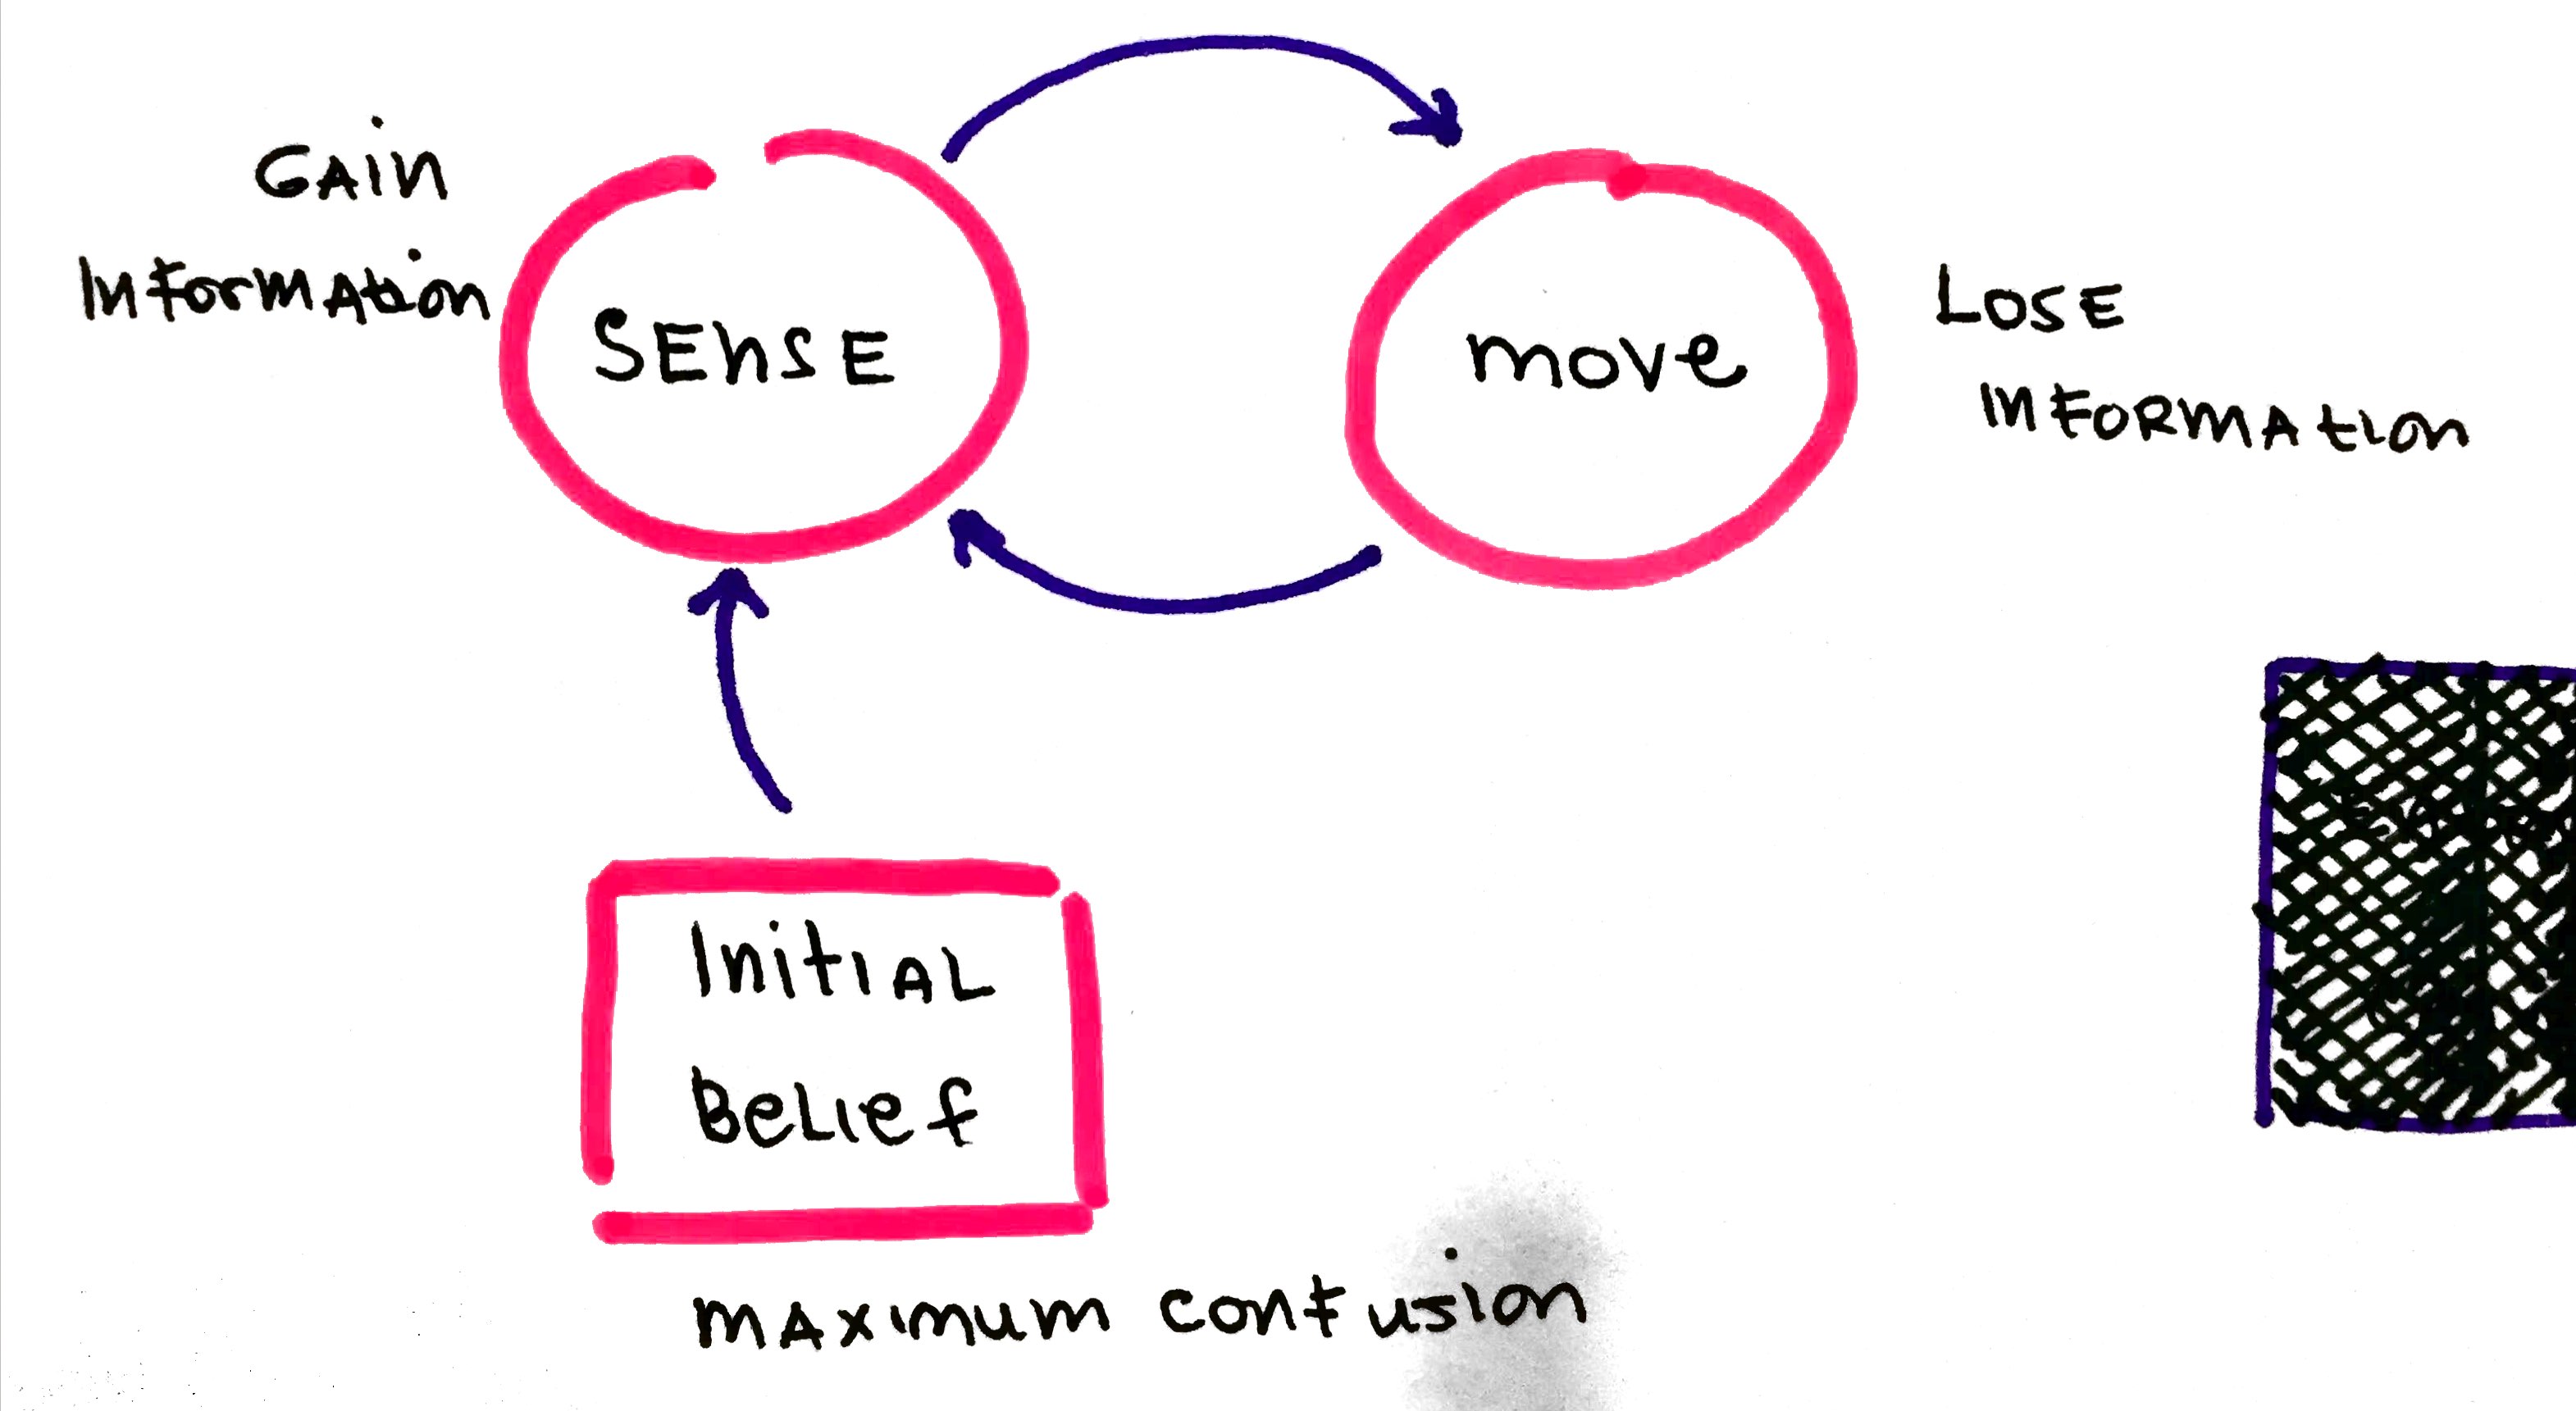 GAin
InFormAtion
SEnSE
move
LOSE
InFORmAtIon
InitIAL
BeLief
mAximum confusion